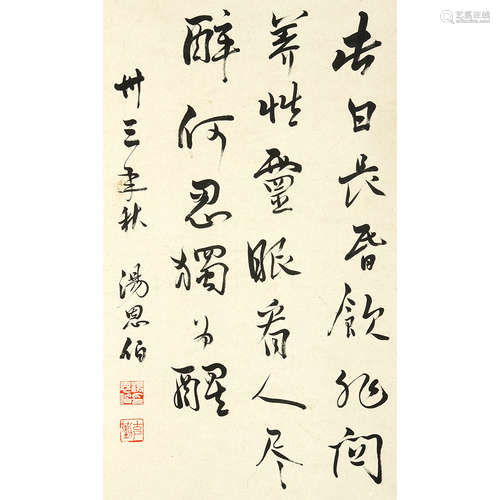 此日長昏飲非關
養性靈眼看人尽
醉何忍獨為醒
卅三年秋 湯恩伯